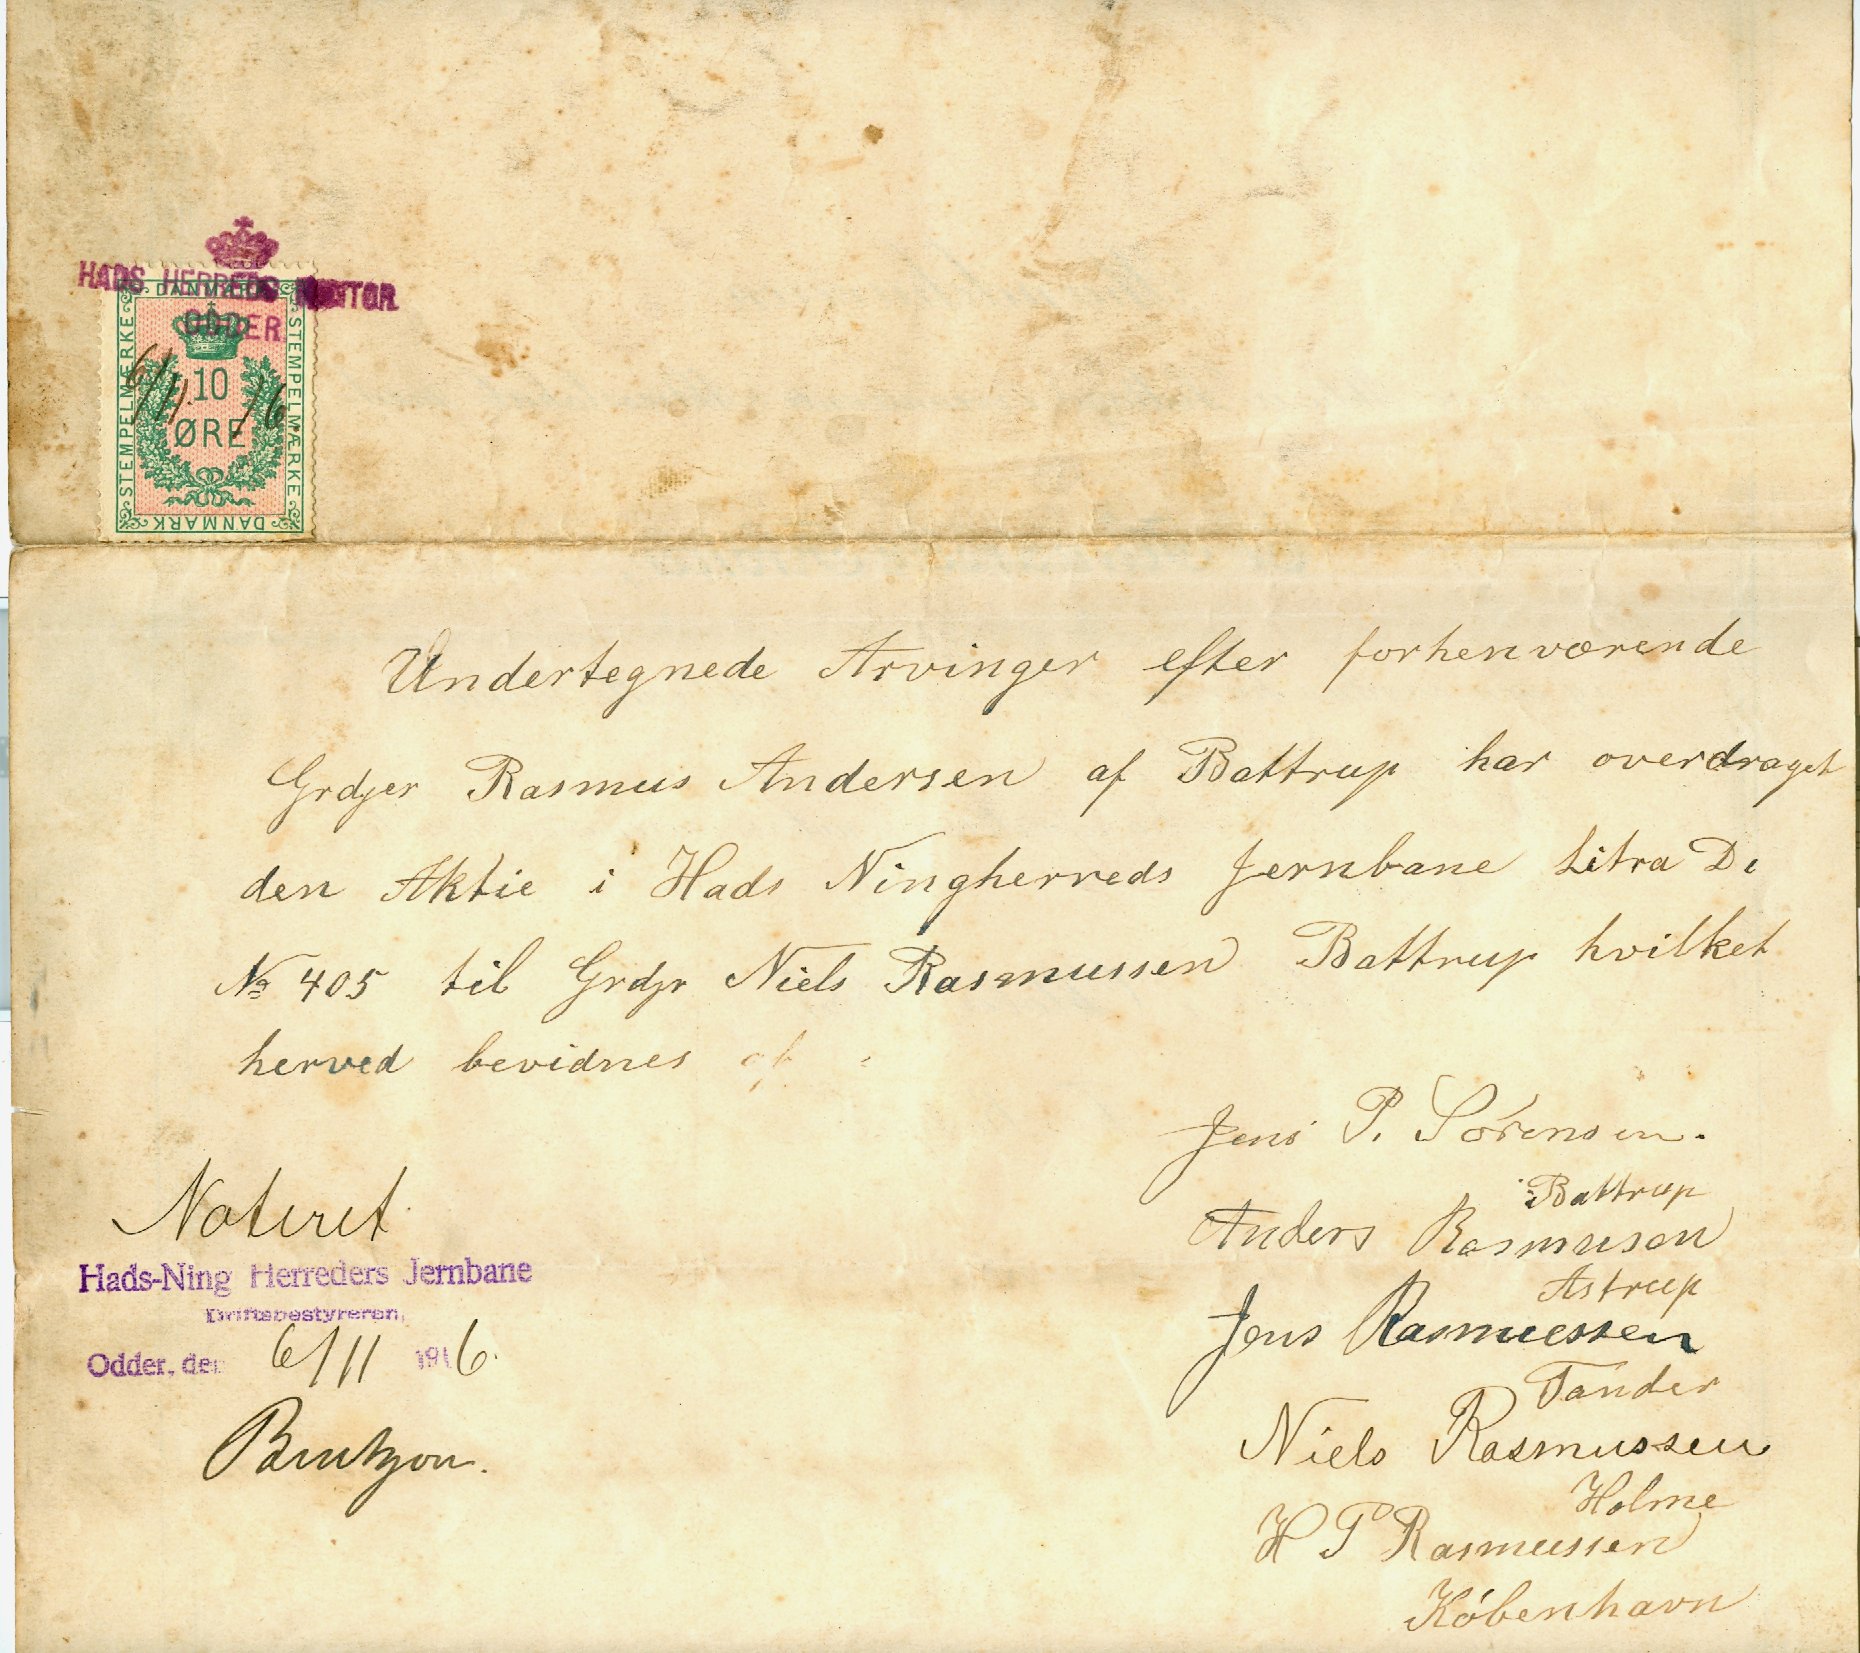 HADS HERREDS KONTOR
ODDER
DANMARK
STEMPELMÆRKE
STEMPELMÆRKE
10
ØRE
6/11 16
DANMARK
Undertegnede Arvinger efter forhenværende
Grdjer Rasmus Andersen af Battrup har overdraget
den Aktie i Hads Ningherreds Jernbane Litra D.
№ 405 til Grdjr Niels Rasmussen Battrup hvilket
herved bevidnes af
Jens P. Sørensen.
Battrup
Anders Rasmusen
Astrup
Jens Rasmussen
Tander
Niels Rasmussen
Holme
H P Rasmussen
København
Noteret
Hads-Ning Herreders Jernbane
Driftsbestyreren,
Odder, den 6/11 1916.